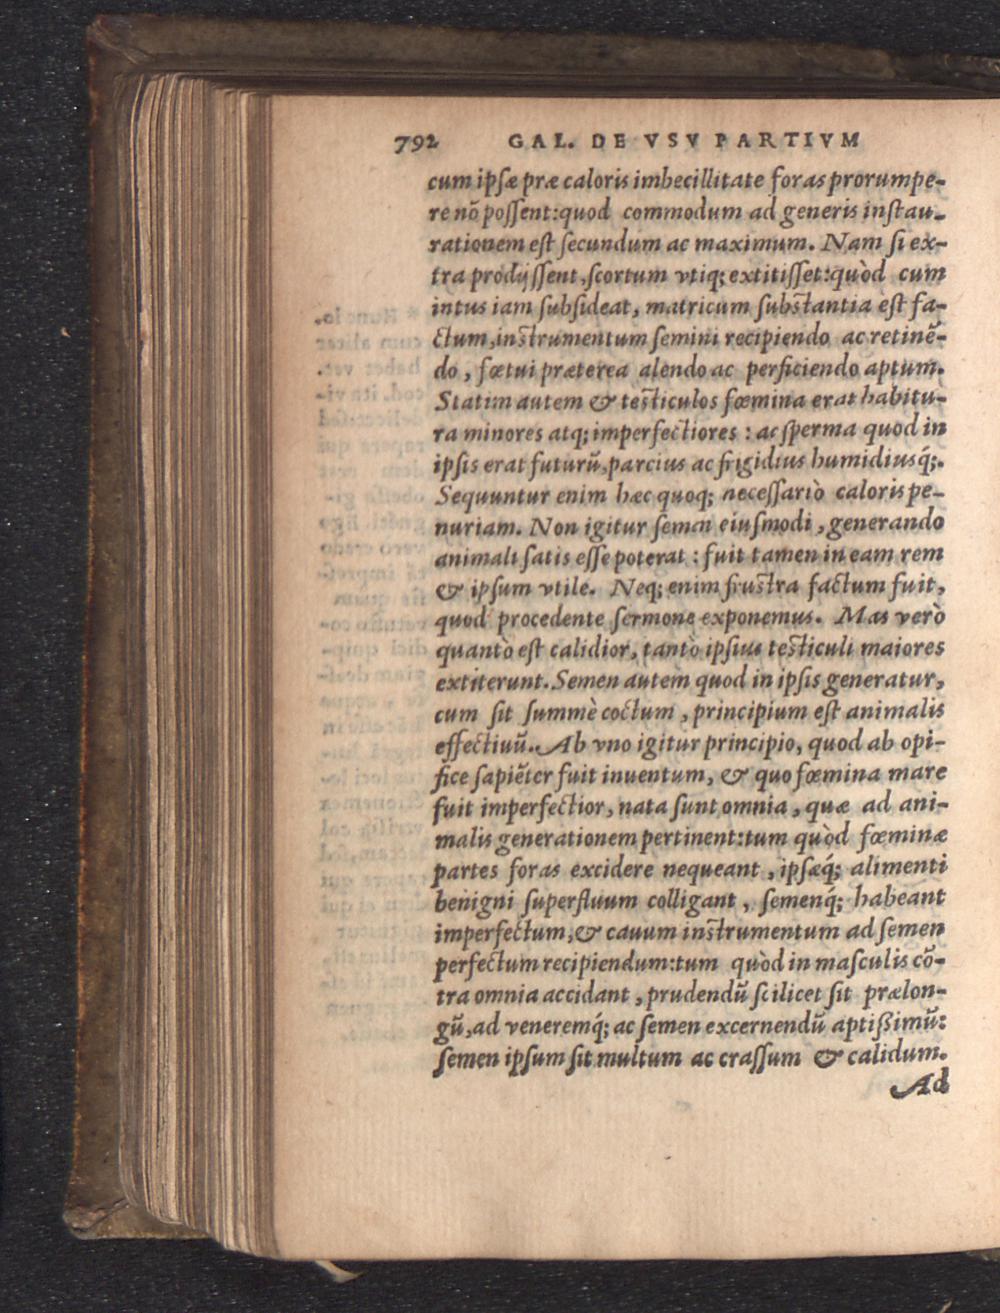 792 GAL. DE VSV PARTIVM
cum ipſæ præ caloris imbecillitate foras prorumpe-
re nõ poſſent:quod commodum ad generis inſtau-
rationem eſt ſecundum ac maximum. Nam ſi ex-
tra prodijſſent,ſcortum vtiq; extitiſſet:quòd cum
intus iam ſubſideat, matricum ſubſtantia eſt fa-
ctum,inſtrumentum ſemini recipiendo ac retinẽ-
do, fœtui præterea alendo ac perficiendo aptum.
Statim autem & teſticulos fœmina erat habitu-
ra minores atq; imperfectiores : ac ſperma quod in
ipſis erat futurũ,parcius ac frigidius humidiusq́;.
Sequuntur enim hæc quoq; neceſſariò caloris pe-
nuriam. Non igitur ſemen eiuſmodi, generando
animali ſatis eſſe poterat : fuit tamen in eam rem
& ipſum vtile. Neq; enim fruſtra factum fuit,
quod procedente ſermone exponemus. Mas verò
quantò eſt calidior, tantò ipſius teſticuli maiores
extiterunt. Semen autem quod in ipſis generatur,
cum ſit ſummè coctum, principium eſt animalis
effectiuũ. Ab vno igitur principio, quod ab opi-
fice ſapiẽter fuit inuentum, & quo fœmina mare
fuit imperfectior, nata ſunt omnia, quæ ad ani-
malis generationem pertinent:tum quòd fœminæ
partes foras excidere nequeant, ipſæq́; alimenti
benigni ſuperfluum colligant, ſemenq́; habeant
imperfectum,& cauum inſtrumentum ad ſemen
perfectum recipiendum:tum quòd in maſculis cõ-
tra omnia accidant, prudendũ ſcilicet ſit prælon-
gũ,ad veneremq́; ac ſemen excernendũ aptißimũ:
ſemen ipſum ſit multum ac craſſum & calidum.
Ad